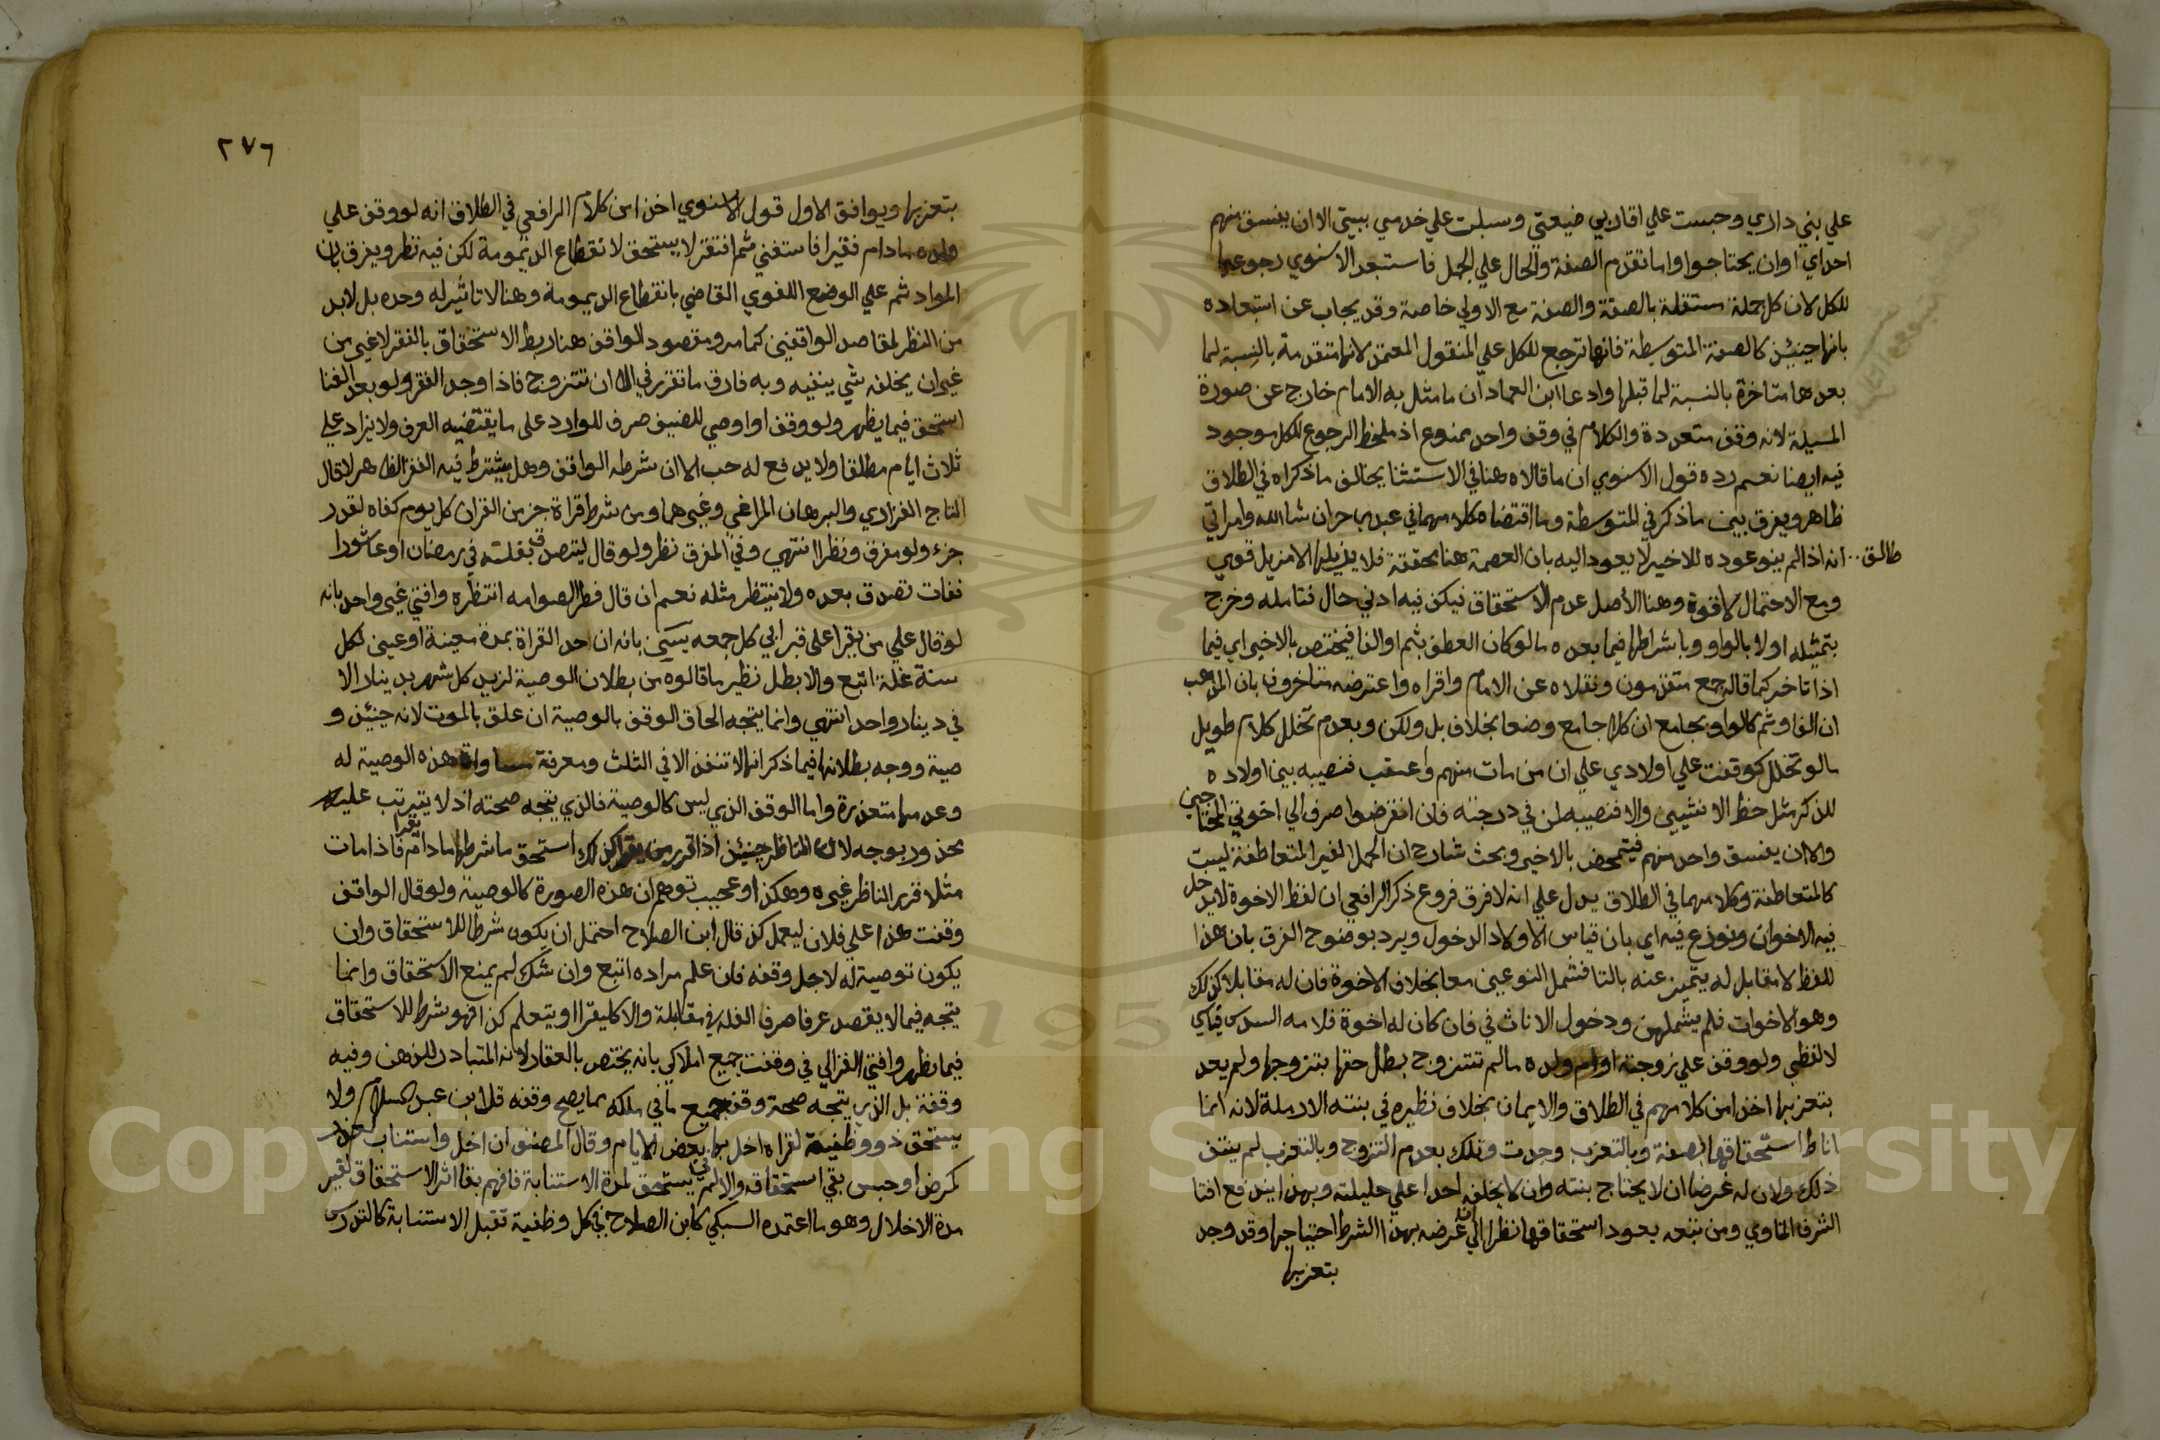 علي بني داري وحبست علي اقاربي ضيعتي وسبلت علي خدمي بيتي الا ان يفسق منهم
احداي او ان يحتاجوا واما تقدم الصفة والحال علي الجمل فاستبعد الاسنوي رجوعها
للكل لان كل جملة مستقلة بالصفة والصفة مع الاولي خاصة وقد يجاب عن استبعاده
بانها حينئذ كالصفة المتوسطة فانها ترجع للكل علي المنقول المعتمد لانها متقدمة بالنسبة لما
بعدها متاخرة بالنسبة لما قبلها وادعا ابن العماد ان ما مثل به الامام خارج عن صورة
المسيلة لانه وقف متعددة والكلام في وقف واحد ممنوع اذ ملحظ الرجوع للكل موجود
فيه ايضا نعم رده قول الاسنوي ان ما قالاه هنا في الاستثنا يخالف ما ذكراه في الطلاق
ظاهر ويفرق بين ما ذكر في المتوسطة وما اقتضاه كلامهما في عبدي حر ان شا الله وامراتي
طالق انه اذا لم ينو عوده للاخير لا يعود اليه بان العصمة هنا محققة فلا يزيلها الا مزيل قوي
ومع الاحتمال لا قوة وهنا الأصل عدم الاستحقاق فيكفي فيه ادني حال فتامله وخرج
بتمثيله اولا بالواو وباشراطها فيما بعده ما لو كان العطف بثم او الفا فيختص بالاخير اي فيما
اذا تاخر كما قاله جمع متقدمون ونقلاه عن الامام واقراه واعترضه متاخرون بان المذهب
ان الفا وثم كالواو بجامع ان كلا جامع وضعا بخلاف بل ولكن وبعدم تخلل كلام طويل
ما لو تخلل كوقفت علي اولادي علي ان من مات منهم واعقب فنصيبه بين اولاده
للذكر مثل حظ الانثيين والا فنصيبه لمن في درجته فان انقرضوا صرف الي اخوتي المحتاجين
والا ان يفسق واحد منهم فيتمحض بالاخير وبحث شارح ان الجمل الغير المتعاطفة ليست
كالمتعاطفة وكلامهما في الطلاق يدل علي انه لا فرق فروع ذكر الرافعي ان لفظ الاخوة لا يدخل
فيه الاخوات ونوزع فيه اي بان قياس الاولاد الدخول ويرد بوضوح الفرق بان هذا
للفظ لا مقابل له يتميز عنه بالتا فشمل النوعين معا بخلاف الاخوة فان له مقابلا كذلك
وهو الاخوات فلم يشملهن ودخول الاناث في فان كان له اخوة فلامه السدس قياسي
لا لفظي ولو وقف علي زوجته او ام ولده ما لم تتزوج بطل حقها بتزوجها ولم يعد
بتعزبها اخذا من كلامهم في الطلاق والايمان بخلاف نظيره في بنته الارملة لانه انما
اناط استحقاقها بصفة وبالتعزب وجدت وتلك بعدم التزوج وبالتعزب لم ينتف
ذلك ولان له غرضا ان لا يحتاج بنته وان لا يخلفه احدا علي حليلته وبهذا يندفع افتا
الشرف المناوي ومن تبعه بعود استحقاقها نظرا الي انه غرضه بهذا الشرط احتياجها وقد وجد
بتعزبها
٢٧٦
بتعزبها ويوافق الاول قول الاسنوي اخذا من كلام الرافعي في الطلاق انه لو وقف علي
ولده ما دام فقيرا فاستغني ثم افتقر لا يستحق لانقطاع الديمومة لكن فيه نظر ويفرق بان
المواد ثم علي الوضع اللغوي القاضي بانقطاع الديمومة وهنا لا تاثير له وحده بل لا بد
من النظر لمقاصد الواقفين كما مر ومقصود الواقف هنا ربط الاستحقاق بالفقر لا غير من
غير ان يخلفه شي ينفيه وبه فارق ما تقرر في الا ان تتزوج فاذا وجد الفقر ولو بعد الغنا
استحق فيما يظهر ولو وقف او اوصي للضيف صرف للوارد على ما يقتضيه العرف ولا يزاد علي
ثلاث ايام مطلقا ولا يدفع له حب الا ان شرطه الواقف وهل يشترط فيه الفقر الظاهر لا قال
التاج الفزاري والبرهان المراغي وغيرهما ومن شرط قراة جز من القران كل يوم كفاه لقدر
جزء ولو مفرق ونظرا انتهي وفي المفرق نظر ولو قال ليتصدق بغلته في رمضان او عاشورا
ففات تصدق بعده ولا ينتظر مثله نعم ان قال فطرا لصوامه انتظره وافتي غير واحد بانه
لو قال علي من يقرا على قبر ابي كل جمعه يسين بانه ان حد القراة بمدة معينة او عين لكل
سنة غلة اتبع والا بطل نظير ما قالوه من بطلان الوصية لزيد كل شهر بدينار الا
في دينار واحد انتهي وانما يتجه الحاق الوقف بالوصية ان علق بالموت لانه حينئذ و
صية ووجه بطلانها فيما ذكر انها لا تنفذ الا في الثلث ومعرفة مساواة هذه الوصية له
وعدمها متعذرة واما الوقف الذي ليس كالوصية فالذي يتجه صحته اذ لا يترتب عليه
محذور بوجه لان الناظر حينئذ اذا قرر من يقرا كذلك استحق ما شرط ما دام يقرا فاذا مات
مثلا قرر الناظر غيره وهكذا وعجيب توهم ان هذه الصورة كالوصية ولو قال الواقف
وقفت هذا علي فلان ليعمل كذا قال ابن الصلاح احتمل ان يكون شرطا للاستحقاق وان
يكون توصية له لاجل وقفه فان علم مراده اتبع وان شك لم يمنع الاستحقاق وانما
يتجه فيما لا يقصد عرفا صرف الغلة في مقابلة والا كليقرا او يتعلم كذا فهو شرط للاستحقاق
فيما يظهر وافتي الغزالي في وقفت جميع املاكي بانه يختص بالعقار لانه المتبادر للذهن وفيه
وقفة بل الذي يتجه صحة وقف جميع ما في ملكه مما يصح وقفه قال ابن عبد السلام ولا
يستحق ذو وظيفة لقراه اخل بها بعض الايام وقال المصنف ان اخل واستناب لعذر
كمرض او حبس بقي استحقاقه والا لم يستحق لمدة الاستنابة فافهم بقا اثر الاستحقاق لغير
مدة الاخلال وهو ما اعتمده السبكي كابن الصلاح في كل وظفية تقبل الاستنابة كالتدريس